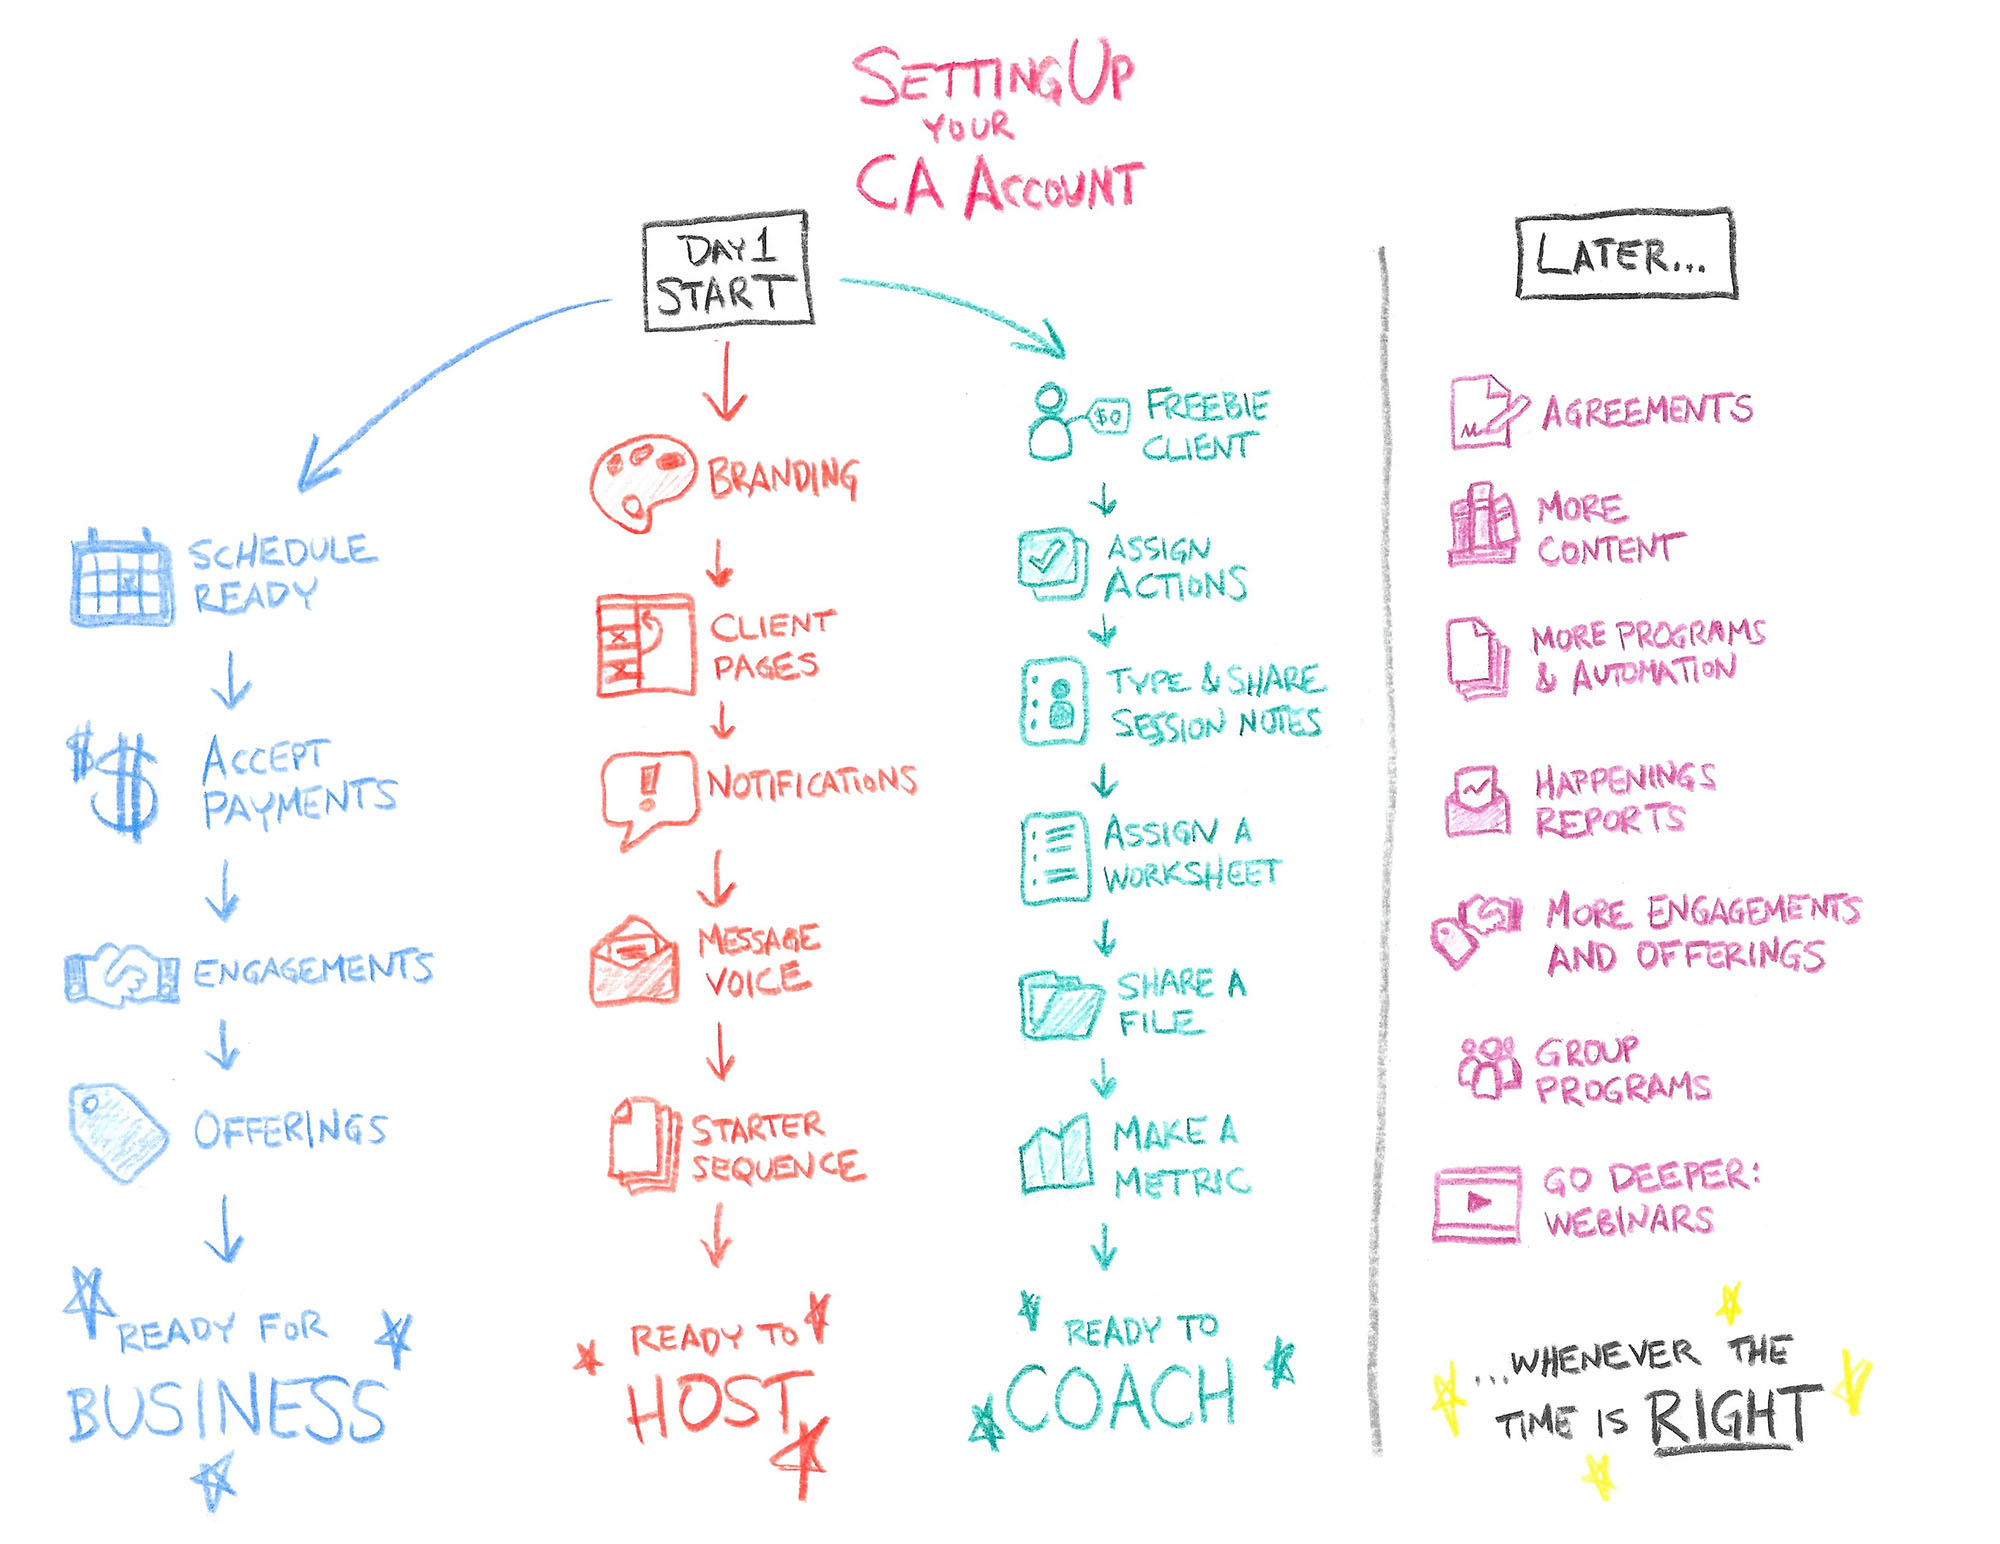 SETTING UP
YOUR
CA ACCOUNT
DAY 1
START
SCHEDULE
READY
$$
ACCEPT
PAYMENTS
ENGAGEMENTS
OFFERINGS
READY FOR
BUSINESS
BRANDING
CLIENT
PAGES
!
NOTIFICATIONS
MESSAGE
VOICE
STARTER
SEQUENCE
READY TO
HOST
$0
FREEBIE
CLIENT
ASSIGN
ACTIONS
TYPE & SHARE
SESSION NOTES
ASSIGN A
WORKSHEET
SHARE A
FILE
MAKE A
METRIC
READY TO
COACH
LATER...
AGREEMENTS
MORE
CONTENT
MORE PROGRAMS
& AUTOMATION
HAPPENINGS
REPORTS
MORE ENGAGEMENTS
AND OFFERINGS
GROUP
PROGRAMS
GO DEEPER:
WEBINARS
...WHENEVER THE
TIME IS RIGHT